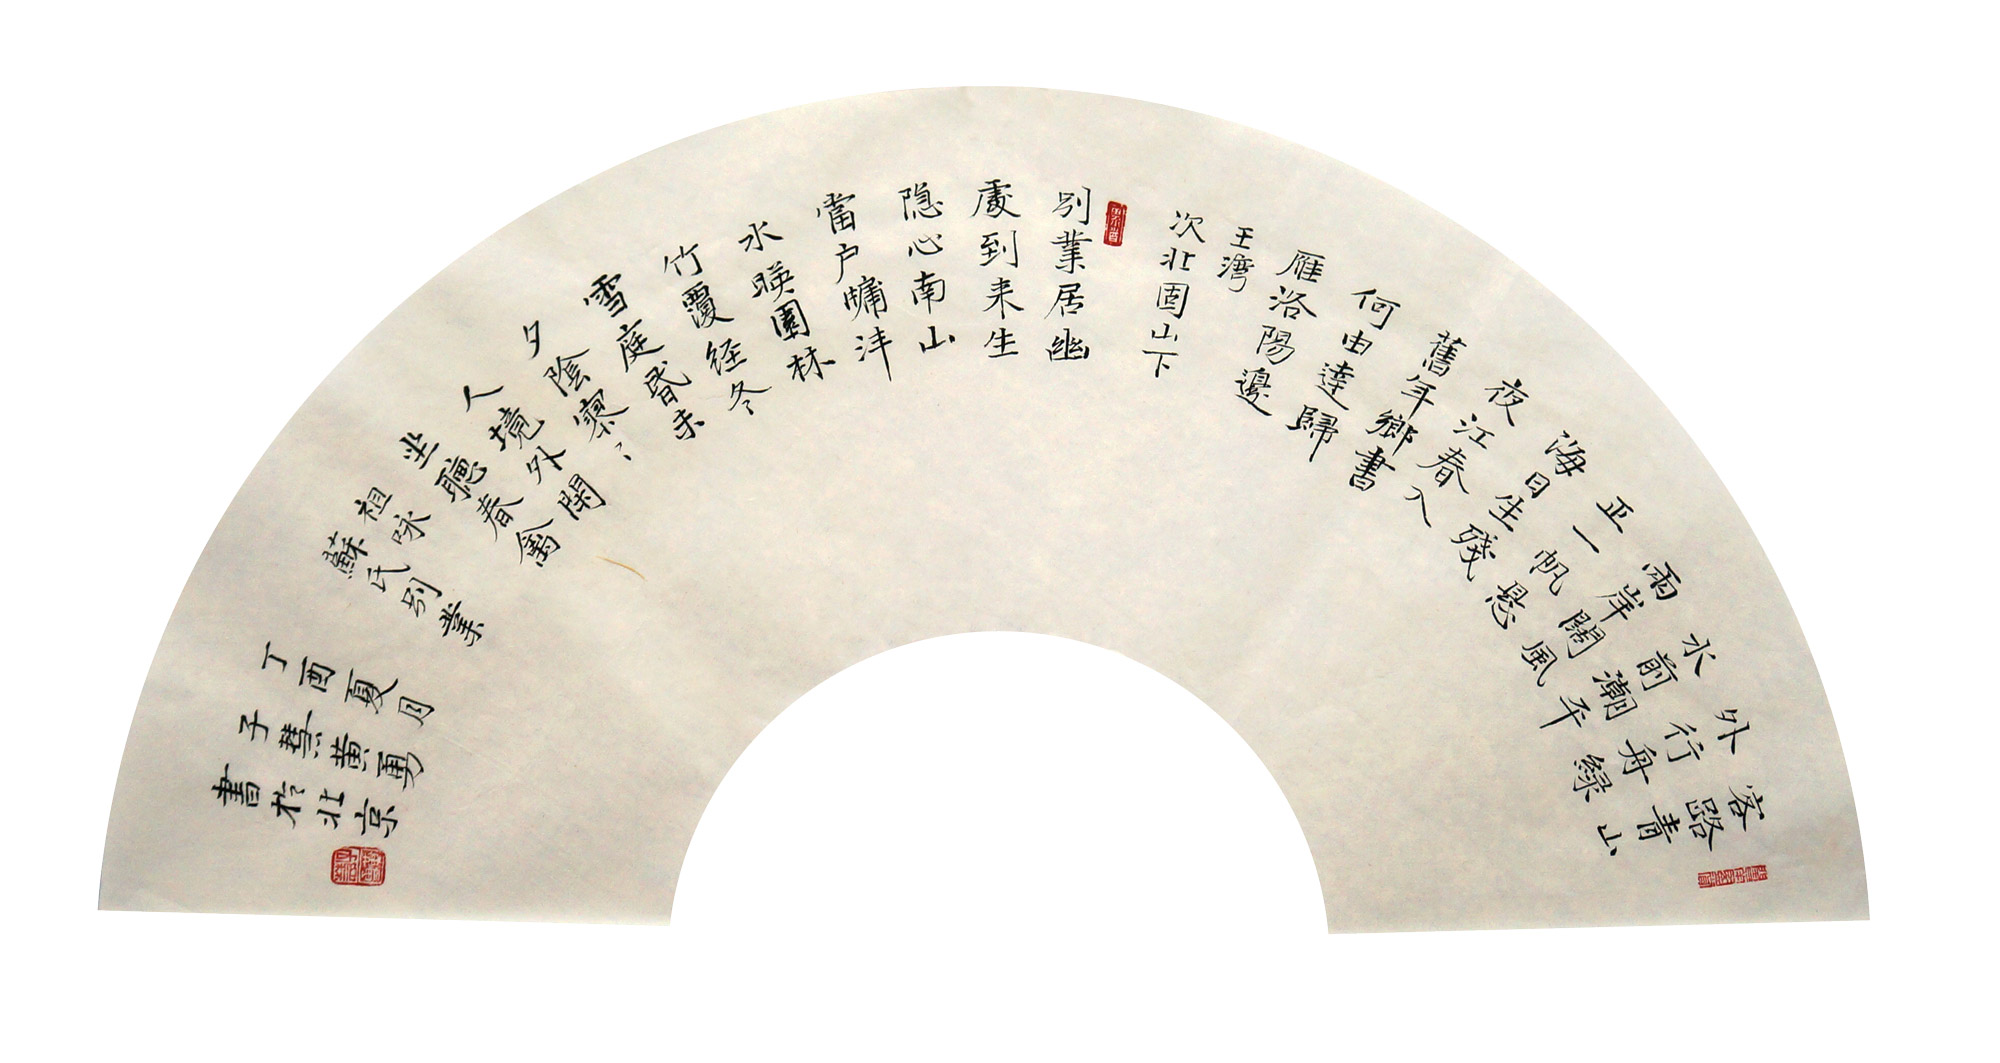 客路青山
外行舟緑
水前潮平
兩岸闊風
正一帆悬
海日生殘
夜江春入
舊年鄉書
何由達歸
雁洛陽邊
王灣
次北固山下
别業居幽
處到来生
隐心南山
當户牖沣
水暎園林
竹覆経冬
雪庭昏未
夕陰寥〻
人境外閑
坐聽春禽
祖咏
蘇氏别業
丁酉夏月
子黄勇
書於北京